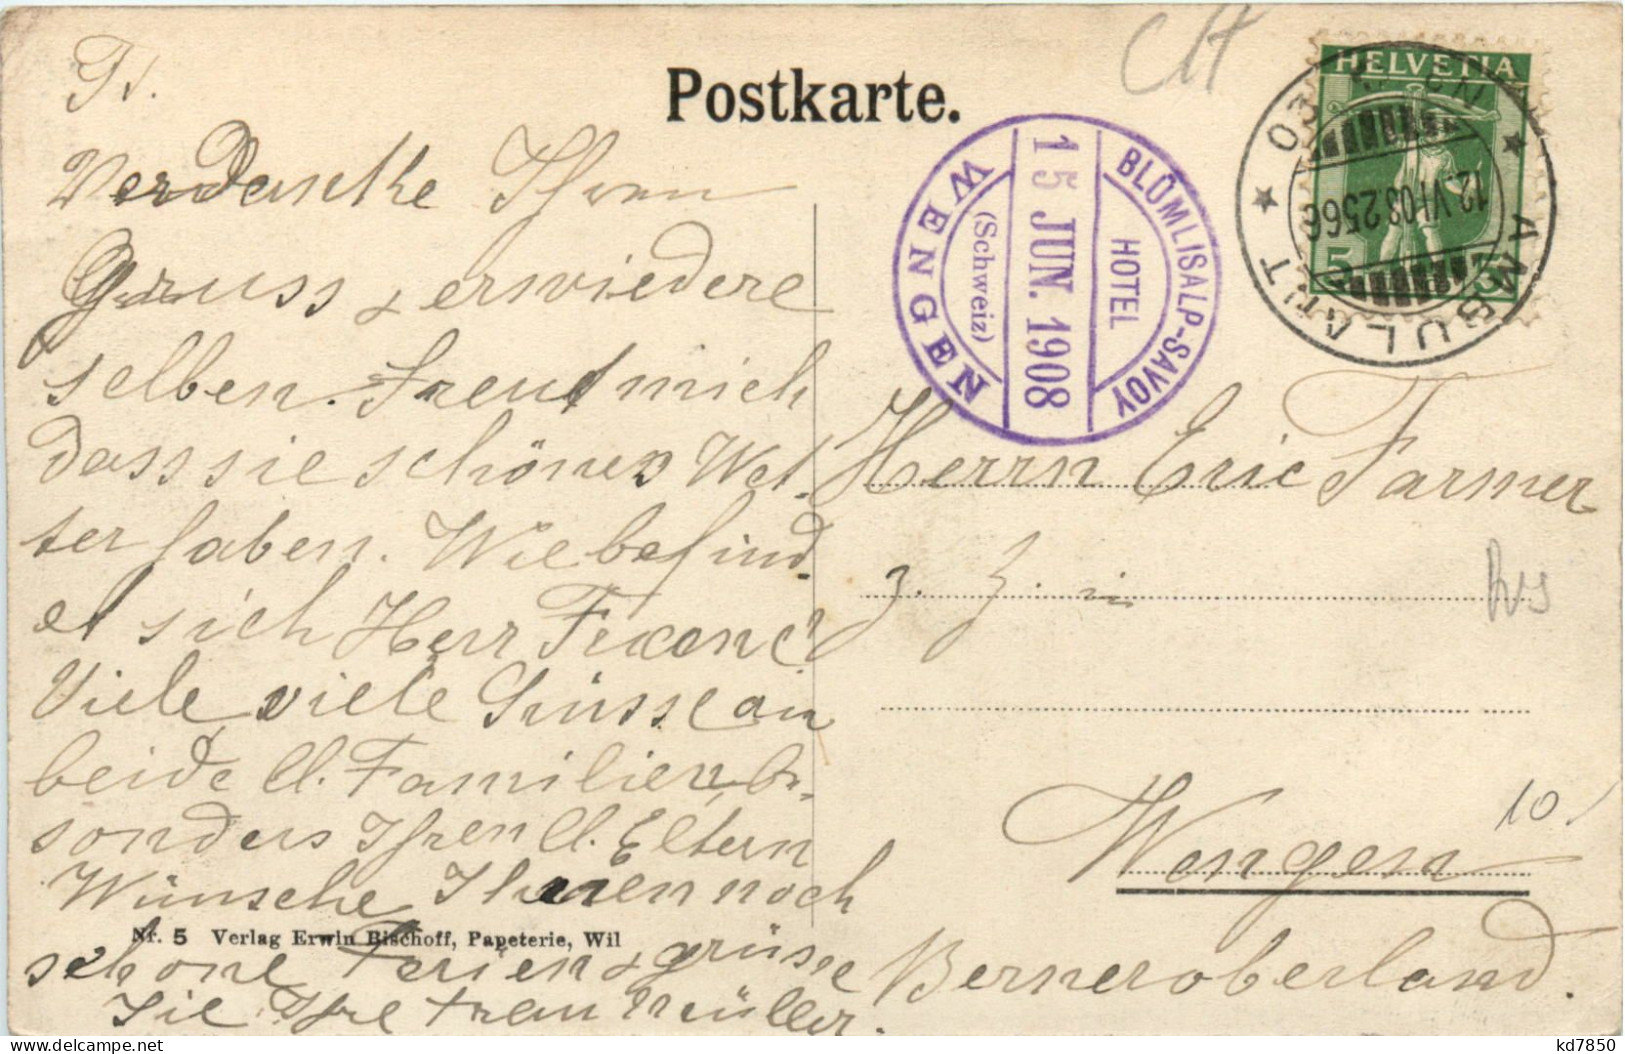 CH
Postkarte.
HELVETIA
5
AMBULANT
12.VI.08.
BLÜMLISALP-SAVOY
HOTEL
15 JUN. 1908
(Schweiz)
WENGEN
Verdanke Ihren
Gruss & erwiedere
selben. Freut mich
dass sie schönes Wet-
ter haben. Wie befind-
et sich Herr
Viele viele Grüsse an
beide ll. Familien, be-
sonders Ihren ll. Eltern
Wünsche Ihnen noch
schöne Ferien & grüsse
Sie Ihre Frau Müller.
Nr. 5 Verlag Erwin Bischoff, Papeterie, Wil
Herrn Eric Farmer
z. Z. in
Wengen
Berneroberland.
10.
kd7850